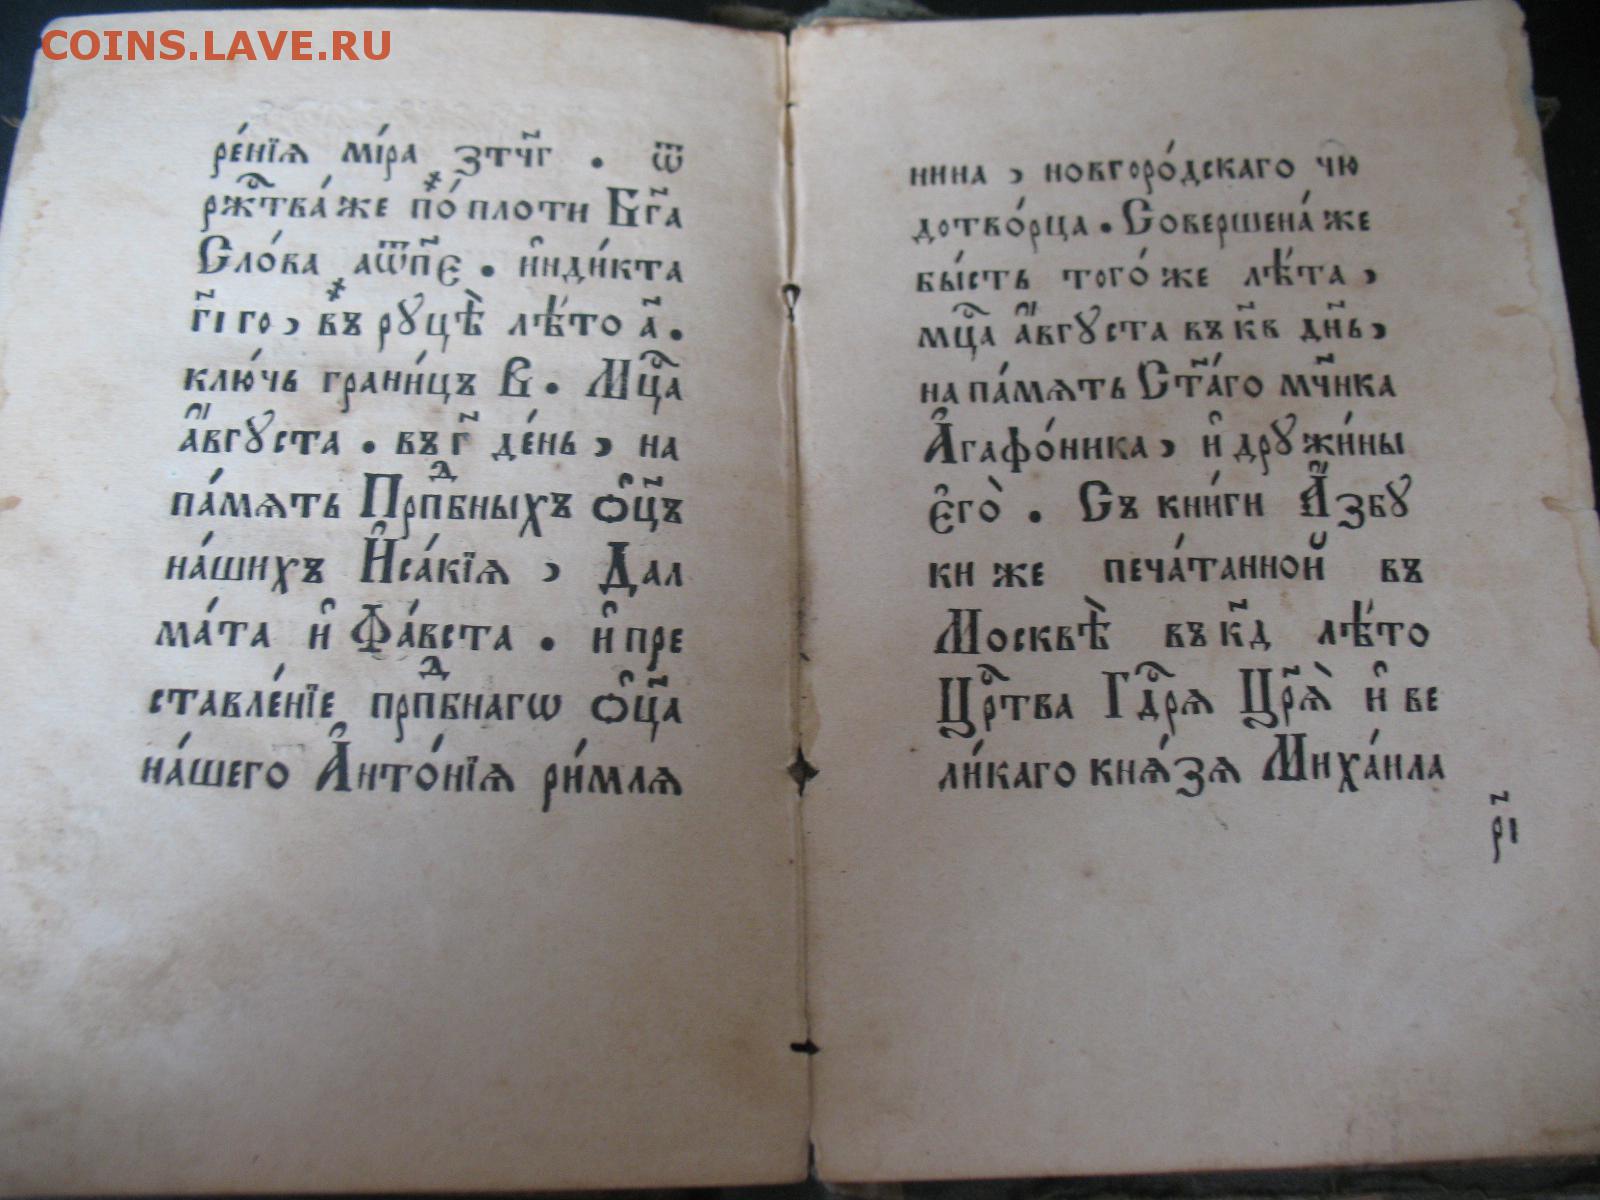 COINS.LAVE.RU
ре́нїѧ мі́ра ҙтч҃г . ѿ
рж҇тва́ же по́ плоти Бг҃а
Сло́ва аѿп҃є . и҆нди́кта
г҃і го , въ рꙋцѣ̀ лѣ́то а҃ .
клю́чь грани́цъ В . Мц҇а
а҆́вгꙋста . въ г҃ де́нь , на
па́мѧть Прпⷣбныхъ ѻ҆ц҃ъ
на́шихъ И҆са́кїѧ , Дал
ма́та и҆ Фа́вста . и҆ пре
ставле́нїе прпⷣбнагѡ ѻ҆ц҃а
на́шего А҆нто́нїѧ ри́млѧ
нина , новгоро́дскаго чю
дотво́рца . Совершена́ же
бы́сть того́ же лѣ́та ,
мц҇а а҆́вгꙋста въ к҃в дн҃ь ,
на па́мѧть Ст҃а́го мч҃нка
А҆гафо́ника , и҆ дрꙋжи́ны
є҆го̀ . Съ книги А҆́збꙋ
ки же печа́танной въ
Москвѣ̀ въ к҃д лѣ́то
Цр҇тва Гд҇рѧ Цр҃ѧ̀ и҆ ве
ли́каго кнѧ́зѧ Миха́ила
р҃і